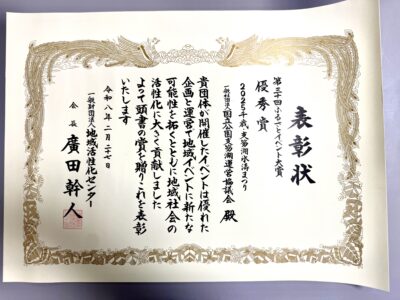 表彰状
第三十回ふるさとイベント大賞
優秀賞
2025千歳・支笏湖氷濤まつり
一般社団法人国立公園支笏湖運営協議会 殿
貴団体が開催したイベントは優れた
企画と運営で地域イベントに新たな
可能性を拓くとともに地域社会の
活性化に大きく貢献しました
よって頭書の賞を贈りこれを表彰
いたします
令和八年二月二十七日
一般財団法人地域活性化センター
会長 廣田幹人